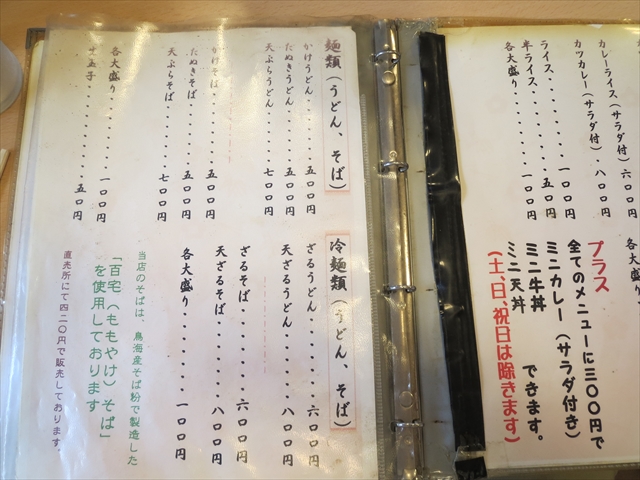 カレーライス(サラダ付)六〇〇円
カツカレー(サラダ付)・八〇〇円
ライス・・・・・・・・・・一〇〇円
半ライス・・・・・・・・・五〇円
各大盛り・・・・・・・・一〇〇円
各大
プラス
全てのメニューに三〇〇円で
ミニカレー(サラダ付き)
ミニ牛丼
ミニ天丼
できます。
(土、日、祝日は除きます)
麺類(うどん、そば)
かけうどん・・・・・五〇〇円
たぬきうどん・・・・五〇〇円
天ぷらうどん・・・・七〇〇円
かけそば・・・・・・五〇〇円
たぬきそば・・・・・五〇〇円
天ぷらそば・・・・・七〇〇円
各大盛り・・・・・・一〇〇円
生玉子・・・・・・・五〇円
冷麺類(うどん、そば)
ざるうどん・・・・・六〇〇円
天ざるうどん・・・・八〇〇円
ざるそば・・・・・・六〇〇円
天ざるそば・・・・・八〇〇円
各大盛り・・・・・・一〇〇円
当店のそばは、鳥海産そば粉で製造した
「百宅(ももやけ)そば」
を使用しております
直売所にて四二〇円で販売しております。